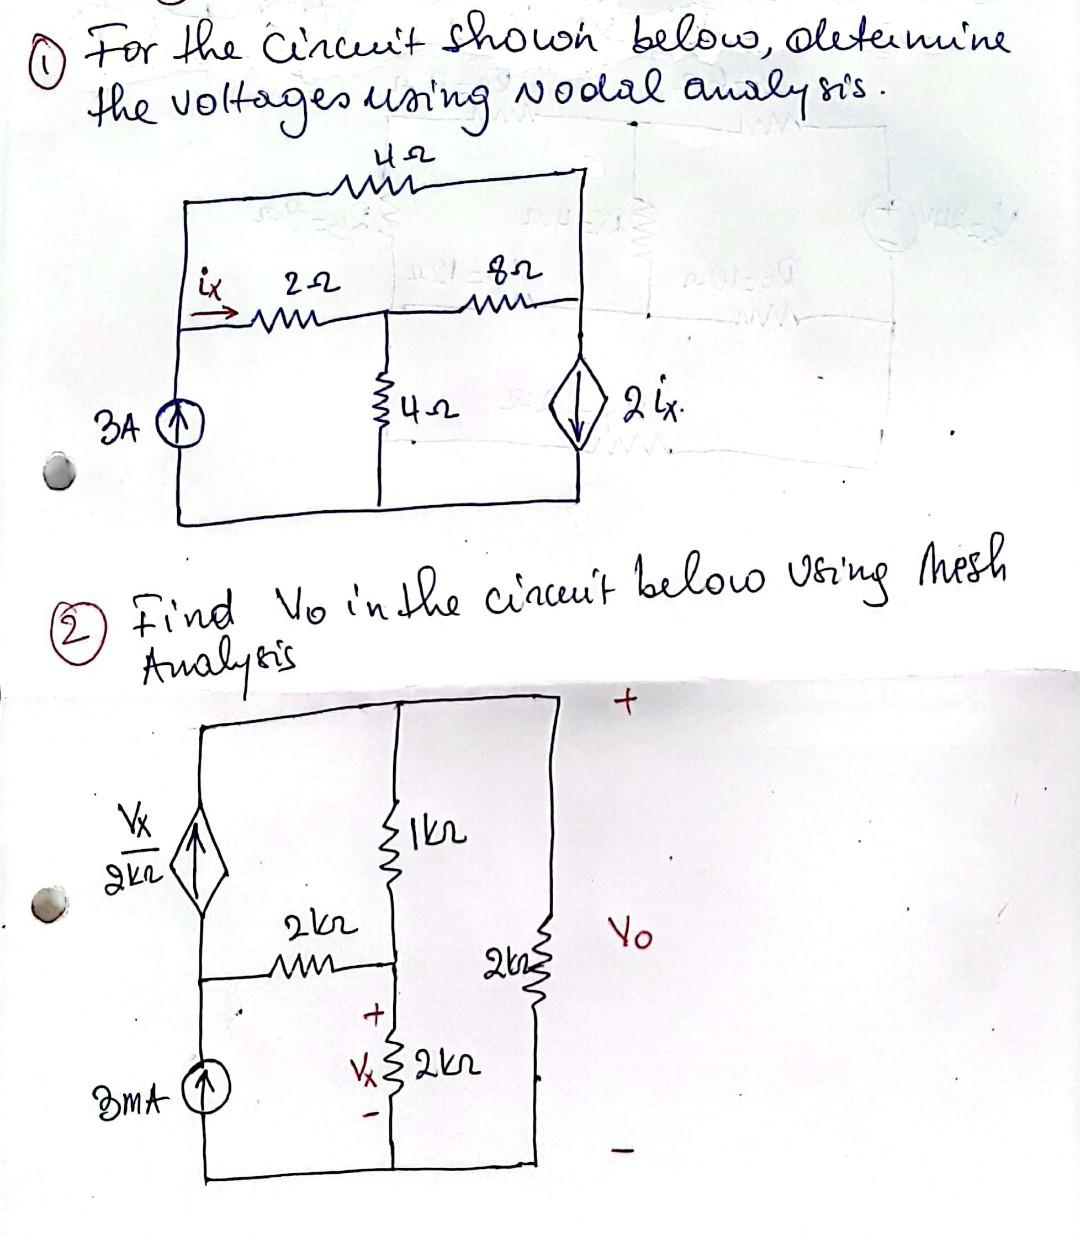 ① For the circuit shown below, determine
the voltages using Nodal analysis.
4Ω
ix
2Ω
8Ω
3A
4Ω
2 ix.
② Find Vo in the circuit below using Mesh
Analysis
+
Vx
2kΩ
1kΩ
2kΩ
Vo
2kΩ
+
Vx
2kΩ
3mA
-
-